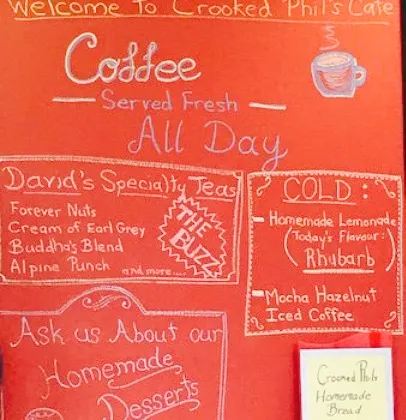 Welcome To Crooked Phil's Cafe
Coffee
Served Fresh
All Day
David's Specialty Teas
Forever Nuts
Cream of Earl Grey
Buddha's Blend
Alpine Punch
and more....
THE
BUZZ
COLD:
Homemade Lemonade
(Today's Flavour:
Rhubarb)
Mocha Hazelnut
Iced Coffee
Ask us About our
Homemade
Desserts
Crooked Phil's
Homemade
Bread